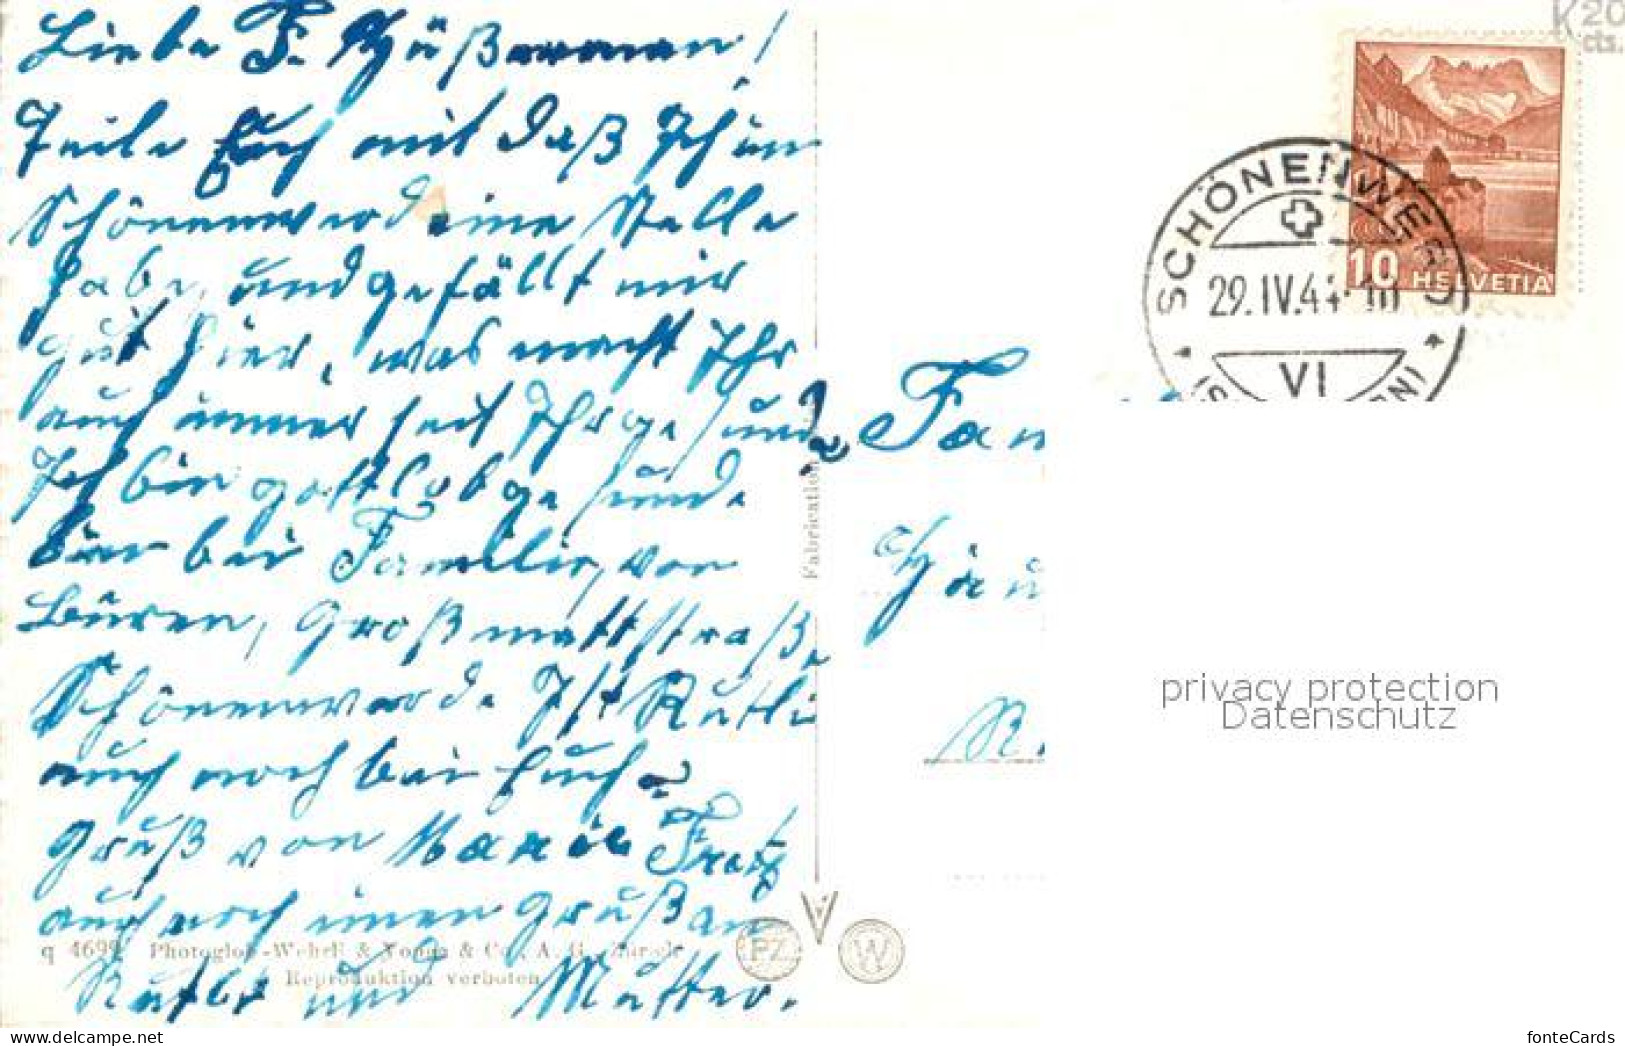 Liebe F. Hüßermann!
Teile Euch mit daß Ich in
Schönenwerd eine Stelle
habe, und gefällt mir
gut hier, was macht Ihr
auch immer seit Ihr gesund?
Ich bin gottlob gesund.
bin bei Familie, von
Büren, Großmattstraß,
Schönenwerd. Ist Rutli
auch noch bei Euch?
Gruß von Marie Frey
auch noch einen Gruß an
Rutli und Mutter.
Fam
Häu
SCHÖNENWERD
29.IV.44-10
VI
10 HELVETIA
K 20
cts.
Fabrication
privacy protection
Datenschutz
q 4699 Photoglob-Wehrli & Vouga & Co., A. G. Zürich
Reproduktion verboten
PZ W
www.delcampe.net
fonteCards